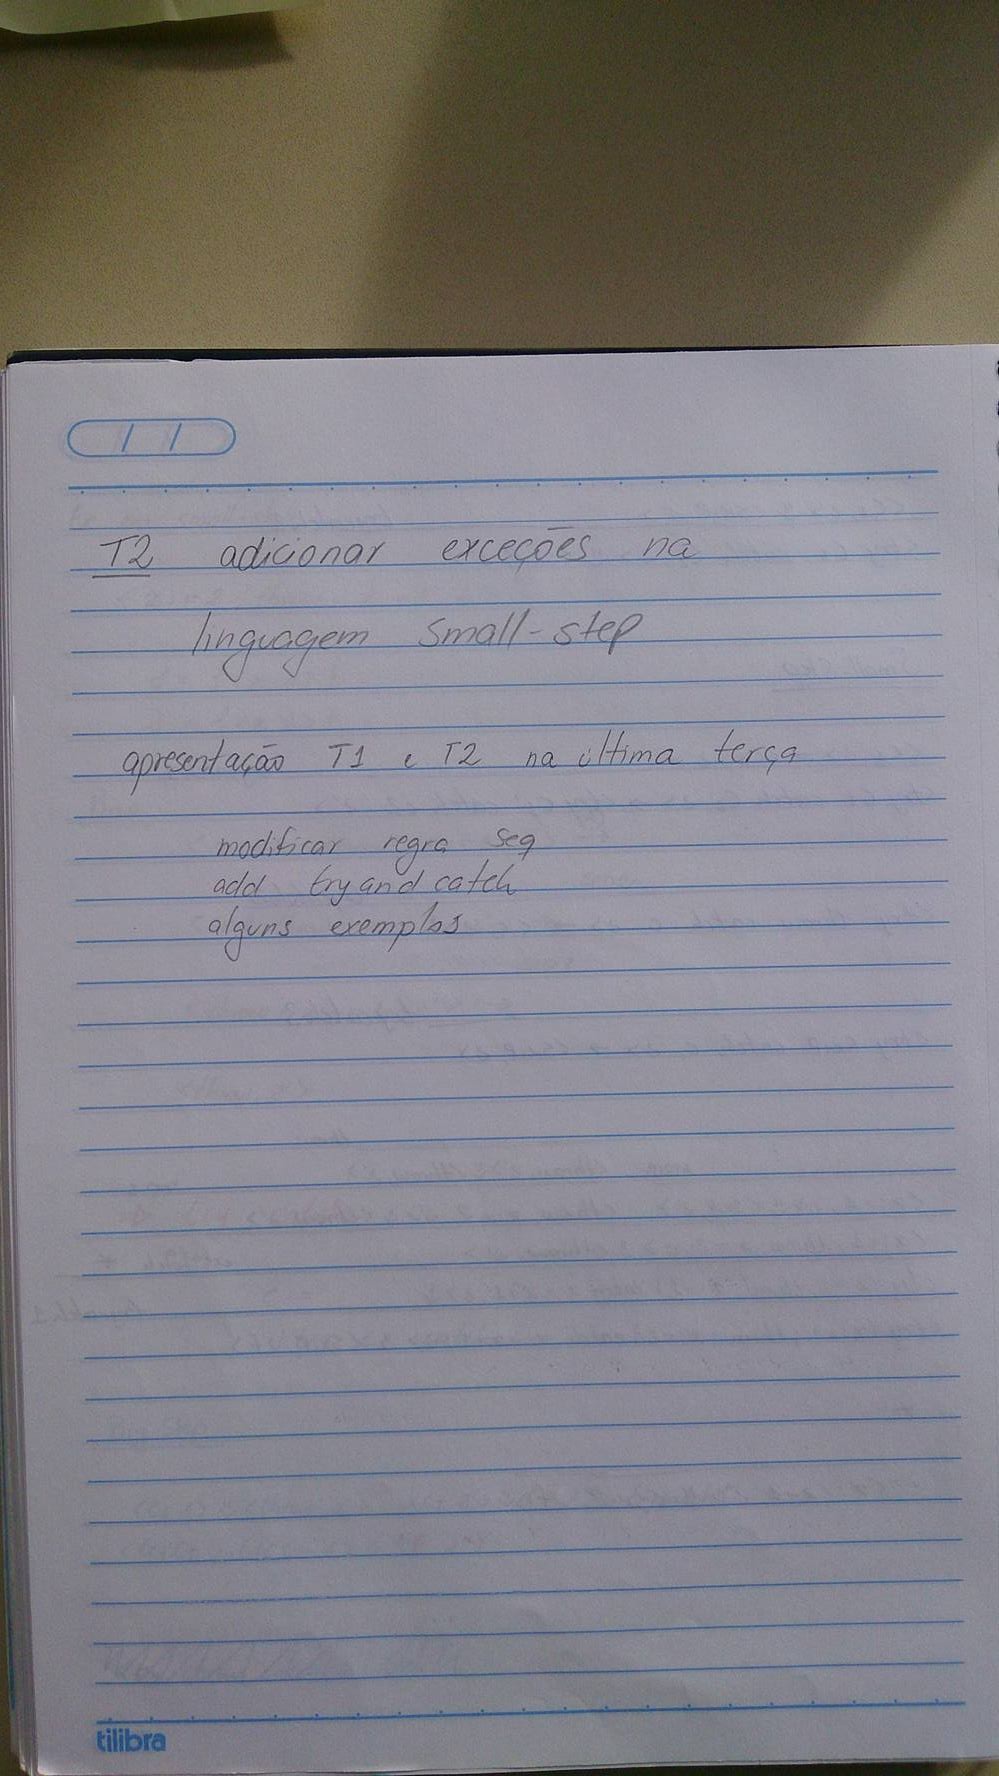 T2 adicionar exceções na
linguagem small-step
apresentação T1 e T2 na última terça
modificar regra seq
add try and catch
alguns exemplos
tilibra